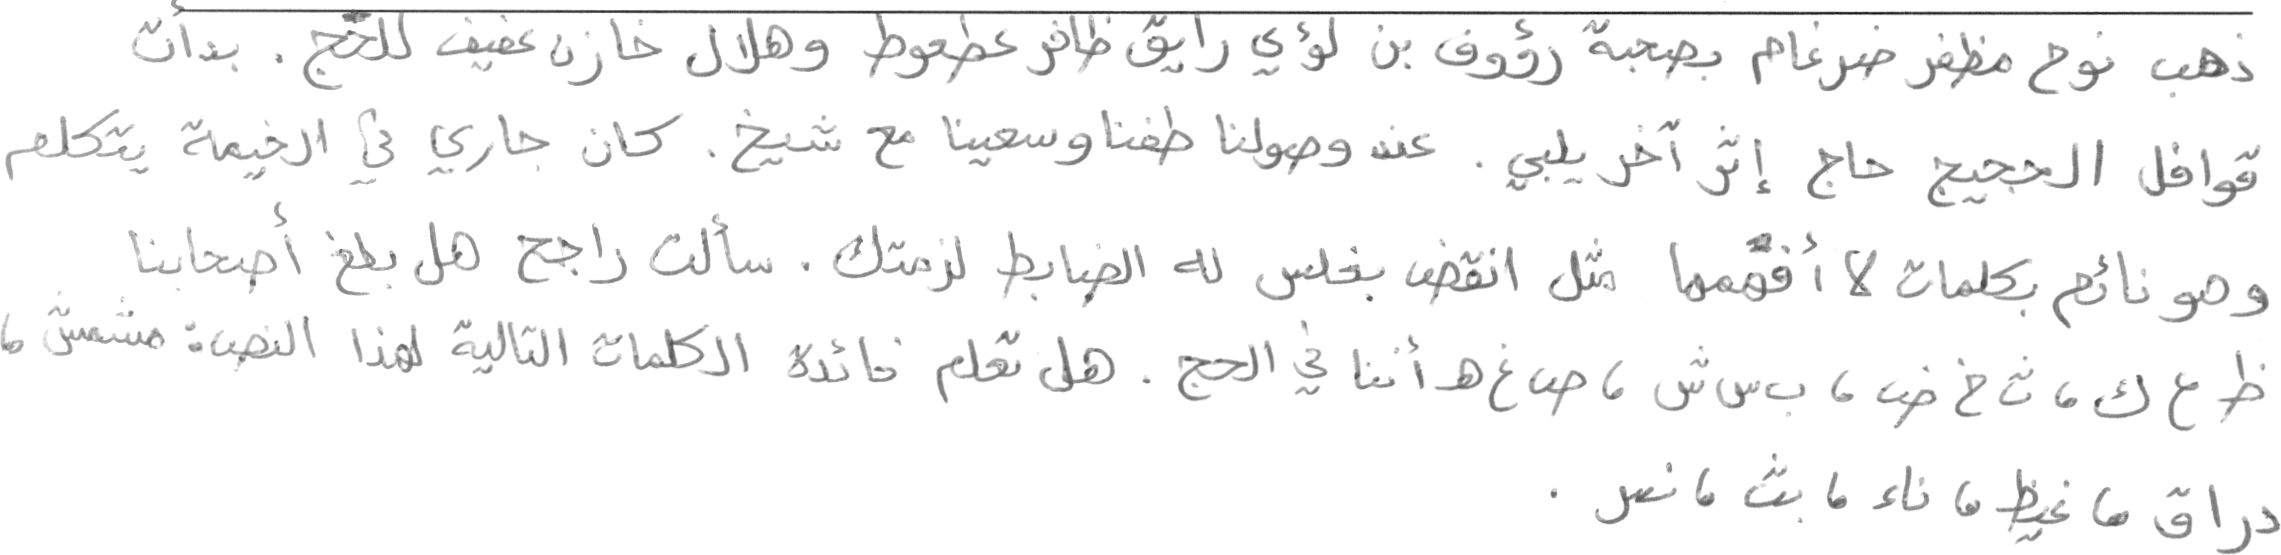 ذهب نوح مظفر ضرغام بصحبة رؤوف بن لؤي رايق ظافر عطعوط وهلال خازن عفيف للحج . بدأت
قوافل الحجيج حاج إثر آخر يلبي . عند وصولنا طفنا وسعينا مع شيخ . كان جاري في الخيمة يتكلم
وهو نائم بكلمات لا أفهمها مثل انقض بغلس له الضابط لزمتك . سألت راجح هل بلغ أصحابنا
ظ ع ك ، ث خ ض ، ب س ش ، ص غ هـ أننا في الحج . هل تعلم فائدة الكلمات التالية لهذا النص : مشمش ،
دراق ، غيظ ، ناء ، بث ، نس .